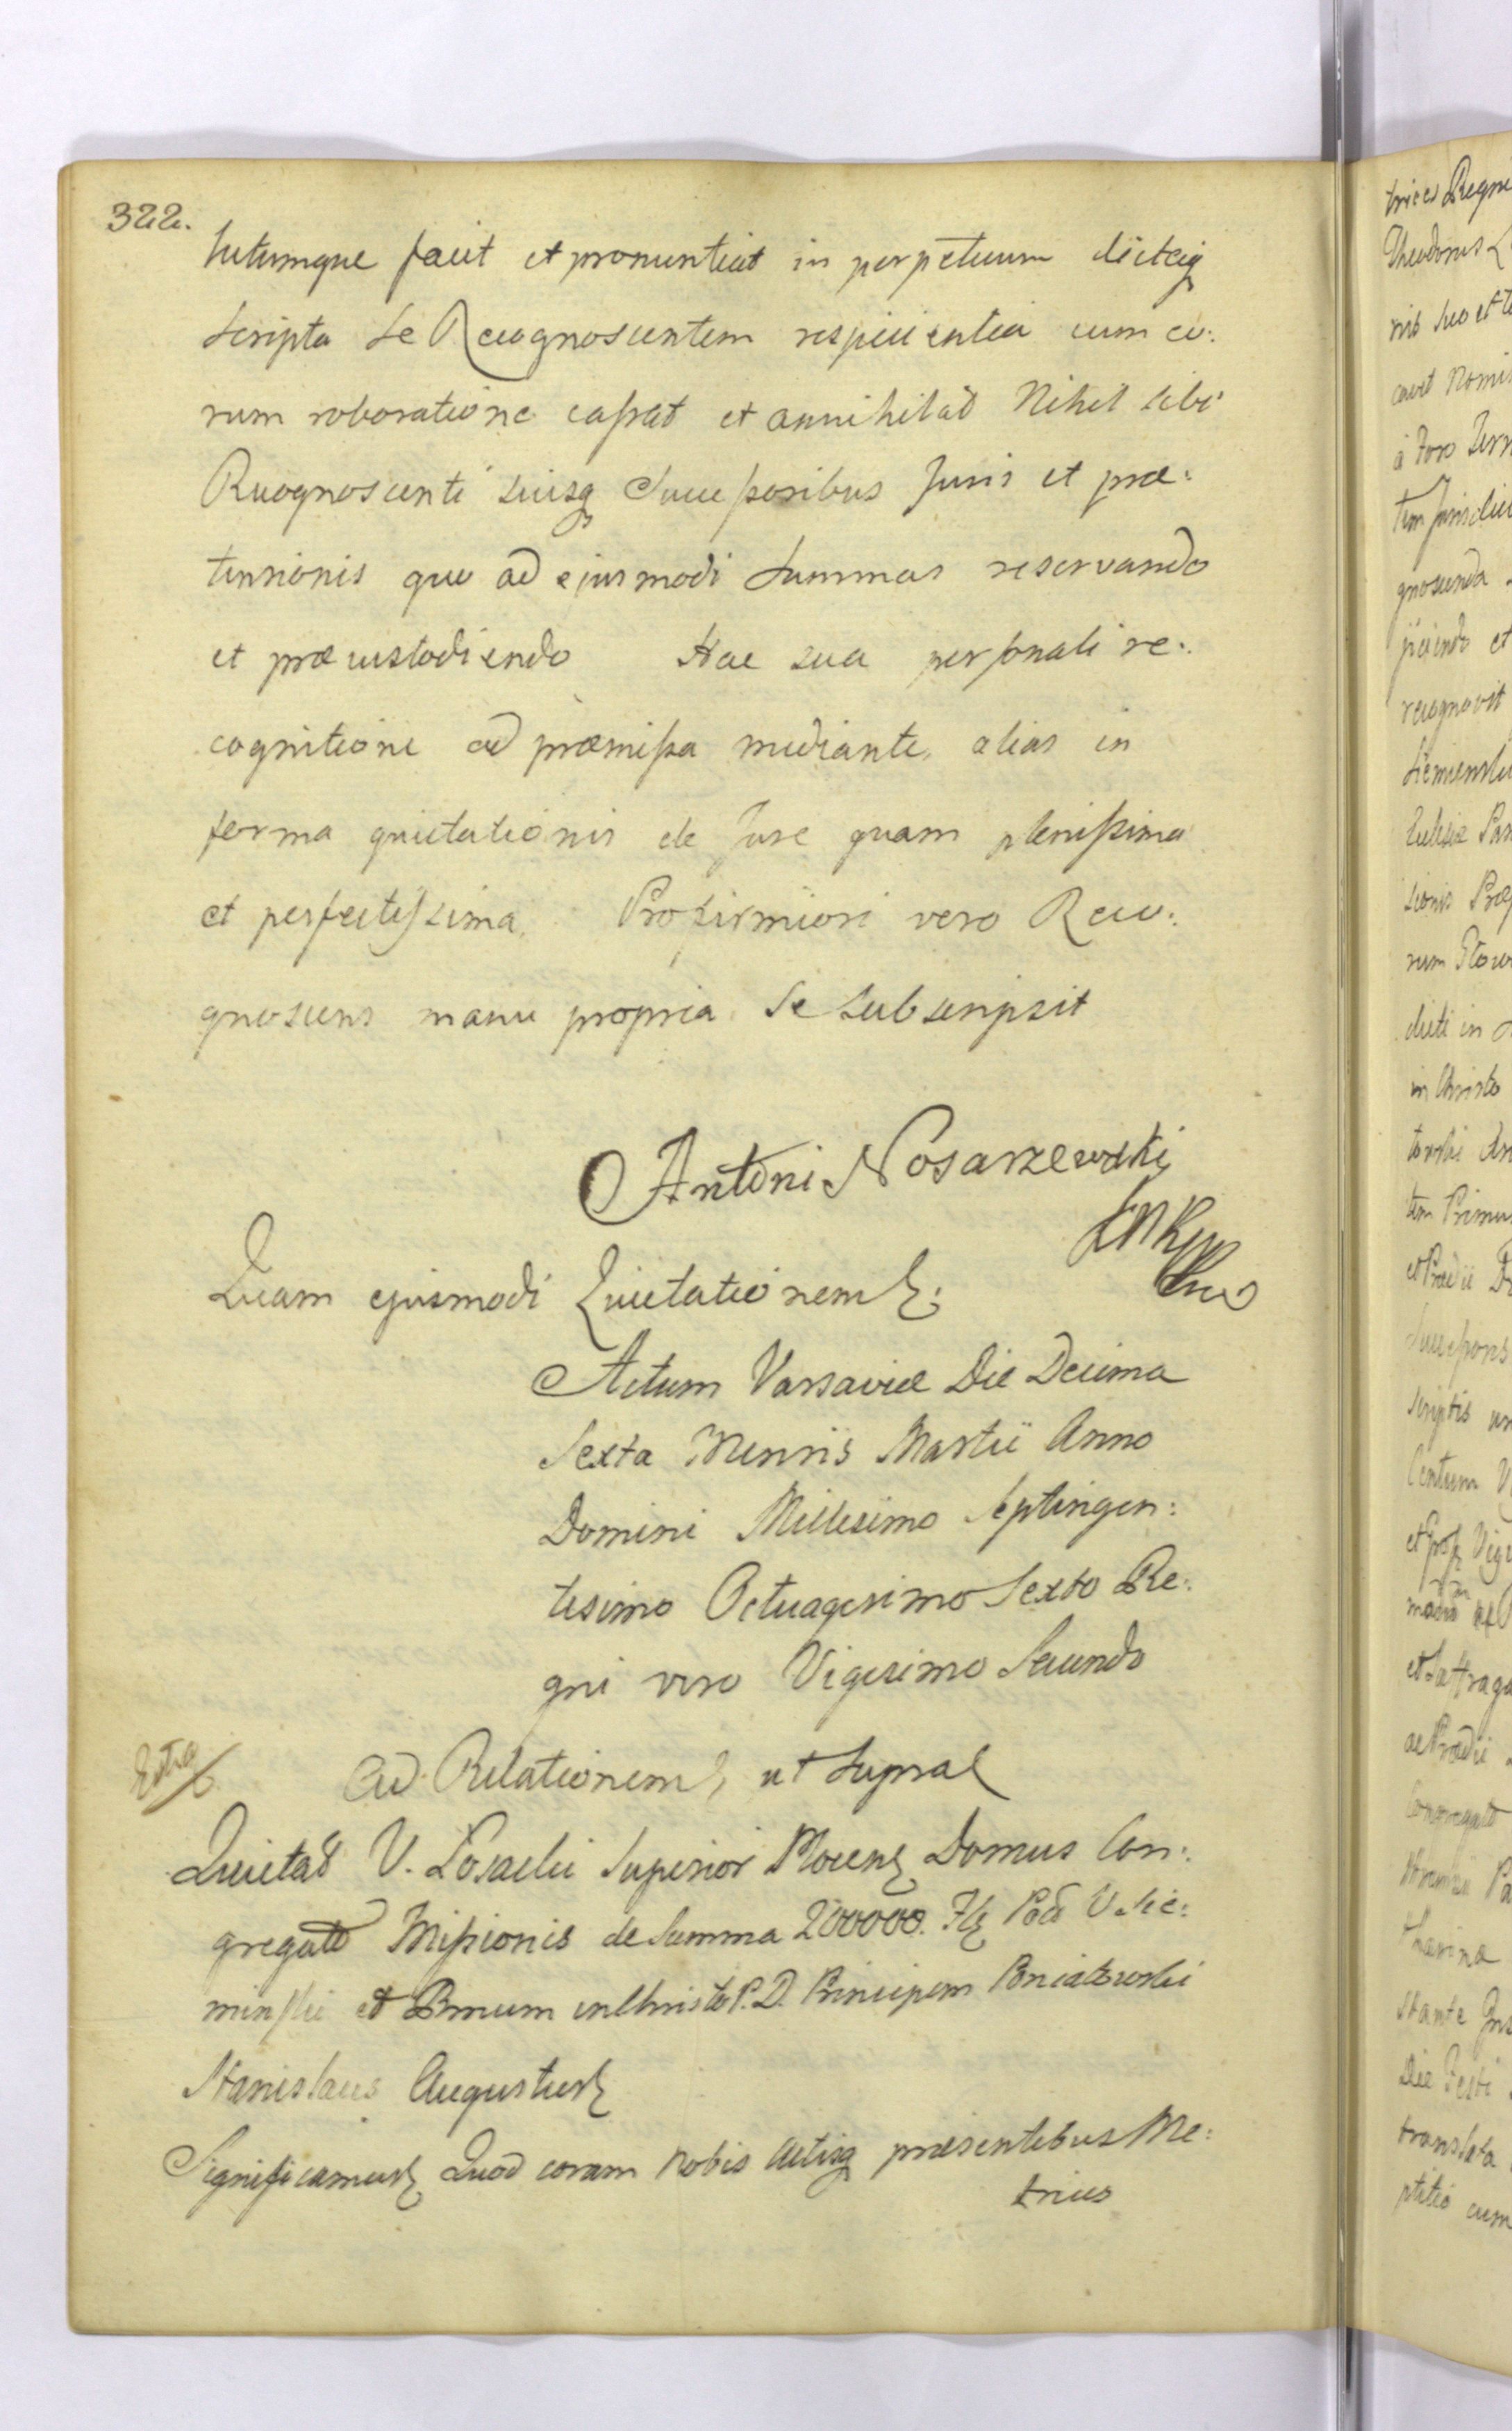 322.
tutumque facit et pronuntiat in perpetuum dictaq
scripta se Recognoscentem respicientia cum eo:
rum roboratione cassat et annihilat Nihil sibi
Recognoscenti suisq Successoribus Juris et præ:
tensionis quo ad ejusmodi Summas reservando
et præcustodiendo Hac sua personali re:
cognitione ad præmissa mediante, alias in
forma quietationis de Jure quam plenissima
et perfectissima. Pro firmiori vero Reco:
gnoscens manu propria se subscripsit
Antoni Nosarzewski
Quam ejusmodi Quietationem
Actum Varsaviæ Die Decima
Sexta Mensis Martii Anno
Domini Millesimo Septingen:
tesimo Octuagesimo Sexto Re:
gni vero Vigesimo Secundo
Ad Relationem, ut supra
Quietat V. Losacki Superior Plocen Domus Con:
gregat Missionis de Summa 200000. Flq Pol V Sie:
minski et Pmum in Christo P. D. Principem Poniatowski
Stanislaus Augustus
Significamus Quod coram Nobis Actisq præsentibus Me:
trices
trices Regn
Theodorus
nis suo et
cavit Nomi
à Foro
tem Jurisdic
gnoscenda
jiciendo et
recognovit
Siemiensk
Eclesiæ
sionis
rum
dicti in
in Christo
tem Primu
et Prædii
Succesores
scriptis
Centum
et Vig
et Suffraga
ac Prædii
Congregat
stante
Die Festi
translata
ptitio cum